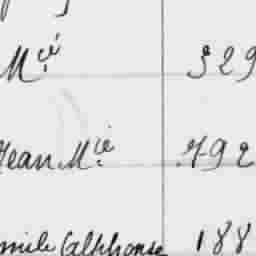 M.ie 329
Jean M.ie 792
mile Alphonse 188